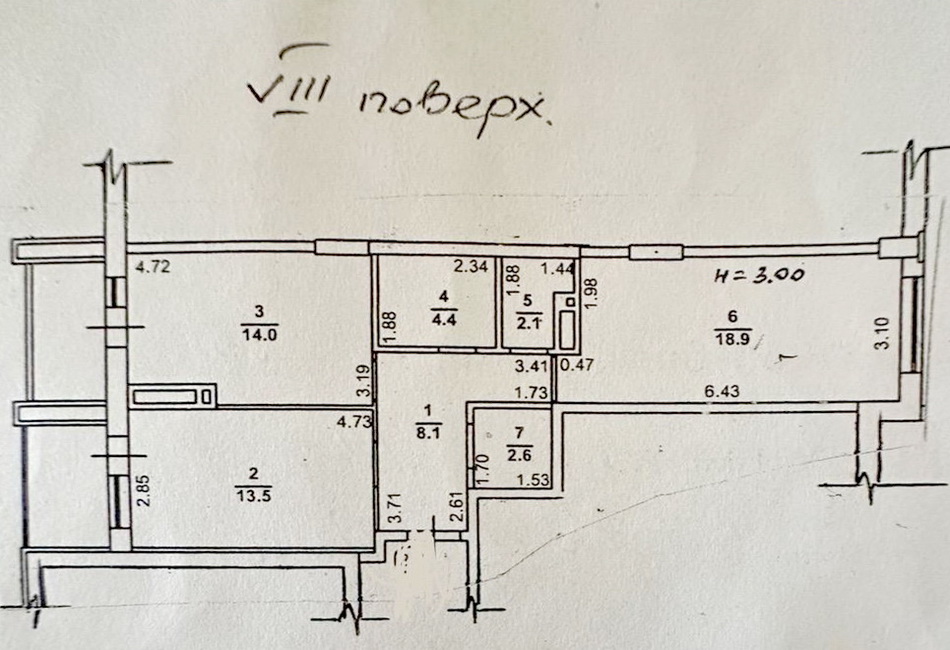 VIII поверх.
4.72
2.34
1.88
1.44
H = 3.00
3
14.0
4
4.4
1.88
5
2.1
1.98
6
18.9
3.10
3.19
3.41
0.47
1.73
6.43
4.73
1
8.1
7
2.6
2
13.5
2.85
1.70
1.53
3.71
2.61